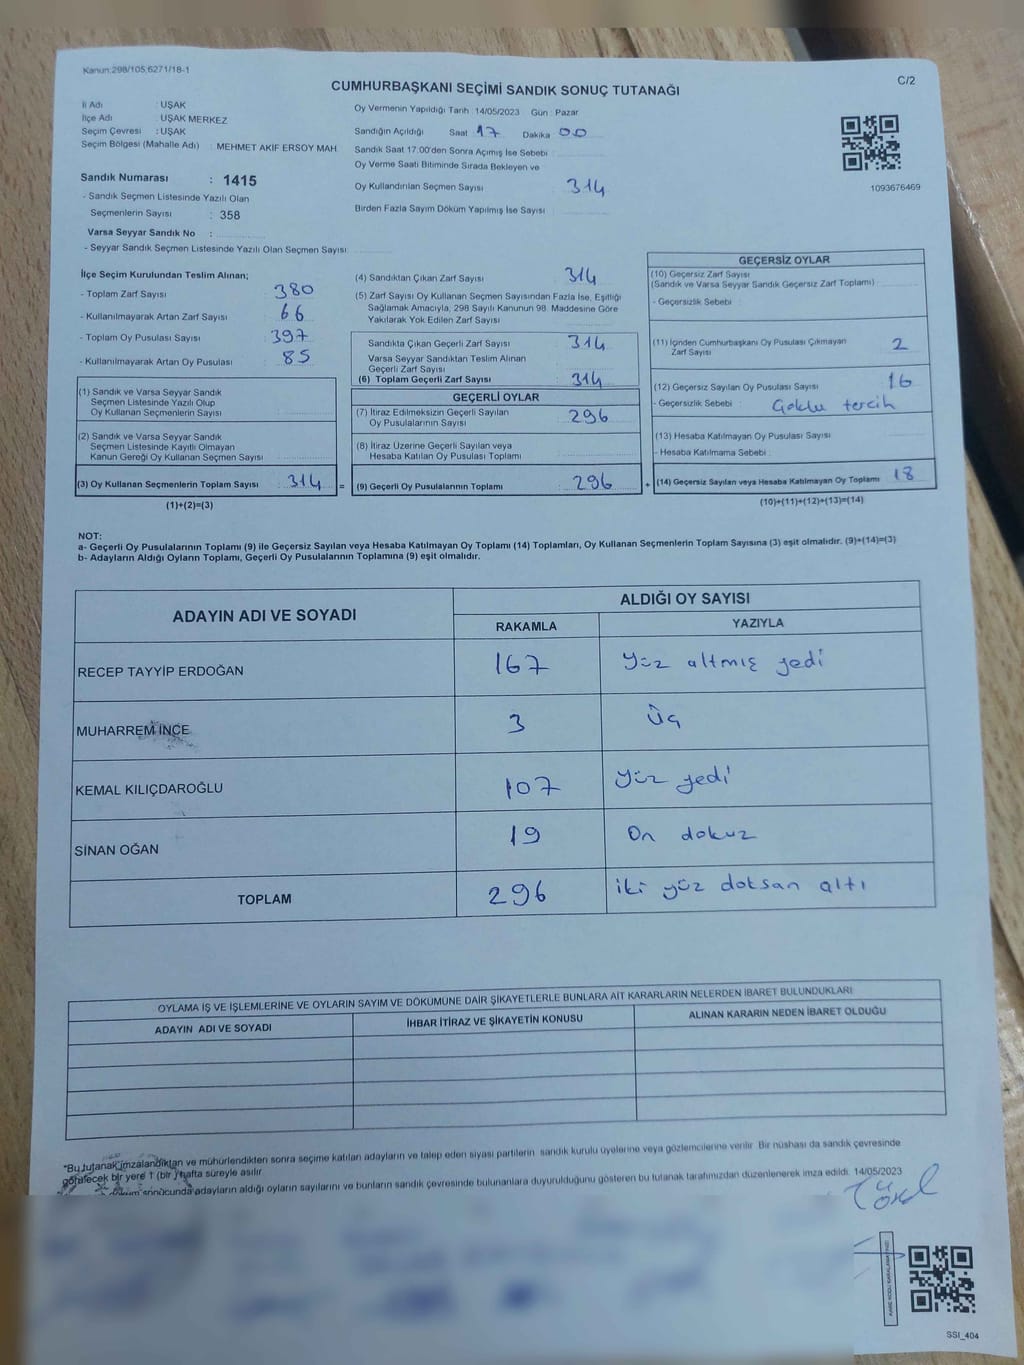 Kanun:298/105,6271/18-1
C/2
CUMHURBAŞKANI SEÇİMİ SANDIK SONUÇ TUTANAĞI
İl Adı : UŞAK
İlçe Adı : UŞAK MERKEZ
Seçim Çevresi : UŞAK
Seçim Bölgesi (Mahalle Adı) : MEHMET AKİF ERSOY MAH
Sandık Numarası : 1415
- Sandık Seçmen Listesinde Yazılı Olan
Seçmenlerin Sayısı : 358
Varsa Seyyar Sandık No :
- Seyyar Sandık Seçmen Listesinde Yazılı Olan Seçmen Sayısı:
Oy Vermenin Yapıldığı Tarih : 14/05/2023 Gün : Pazar
Sandığın Açıldığı Saat 17 Dakika 00
Sandık Saat 17:00'den Sonra Açımış İse Sebebi :
Oy Verme Saati Bitiminde Sırada Bekleyen ve
Oy Kullandırılan Seçmen Sayısı : 314
Birden Fazla Sayım Döküm Yapılmış İse Sayısı :
1093676469
İlçe Seçim Kurulundan Teslim Alınan;
- Toplam Zarf Sayısı : 380
- Kullanılmayarak Artan Zarf Sayısı : 66
- Toplam Oy Pusulası Sayısı : 397
- Kullanılmayarak Artan Oy Pusulası : 85
(1) Sandık ve Varsa Seyyar Sandık
Seçmen Listesinde Yazılı Olup
Oy Kullanan Seçmenlerin Sayısı :
(2) Sandık ve Varsa Seyyar Sandık
Seçmen Listesinde Kayıtlı Olmayan
Kanun Gereği Oy Kullanan Seçmen Sayısı :
(3) Oy Kullanan Seçmenlerin Toplam Sayısı : 314 =
(1)+(2)=(3)
(4) Sandıktan Çıkan Zarf Sayısı : 314
(5) Zarf Sayısı Oy Kullanan Seçmen Sayısından Fazla İse, Eşitliği
Sağlamak Amacıyla, 298 Sayılı Kanunun 98. Maddesine Göre
Yakılarak Yok Edilen Zarf Sayısı :
Sandıkta Çıkan Geçerli Zarf Sayısı : 314
Varsa Seyyar Sandıktan Teslim Alınan
Geçerli Zarf Sayısı :
(6) Toplam Geçerli Zarf Sayısı : 314
GEÇERLİ OYLAR
(7) İtiraz Edilmeksizin Geçerli Sayılan
Oy Pusulalarının Sayısı : 296
(8) İtiraz Üzerine Geçerli Sayılan veya
Hesaba Katılan Oy Pusulası Toplamı :
(9) Geçerli Oy Pusulalarının Toplamı : 296 +
GEÇERSİZ OYLAR
(10) Geçersiz Zarf Sayısı
(Sandık ve Varsa Seyyar Sandık Geçersiz Zarf Toplamı) :
- Geçersizlik Sebebi :
(11) İçinden Cumhurbaşkanı Oy Pusulası Çıkmayan
Zarf Sayısı : 2
(12) Geçersiz Sayılan Oy Pusulası Sayısı : 16
- Geçersizlik Sebebi : Çoklu tercih
(13) Hesaba Katılmayan Oy Pusulası Sayısı :
- Hesaba Katılmama Sebebi :
(14) Geçersiz Sayılan veya Hesaba Katılmayan Oy Toplamı : 18
(10)+(11)+(12)+(13)=(14)
NOT:
a- Geçerli Oy Pusulalarının Toplamı (9) ile Geçersiz Sayılan veya Hesaba Katılmayan Oy Toplamı (14) Toplamları, Oy Kullanan Seçmenlerin Toplam Sayısına (3) eşit olmalıdır. (9)+(14)=(3)
b- Adayların Aldığı Oyların Toplamı, Geçerli Oy Pusulalarının Toplamına (9) eşit olmalıdır.
ADAYIN ADI VE SOYADI ALDIĞI OY SAYISI
RAKAMLA YAZIYLA
RECEP TAYYİP ERDOĞAN 167 Yüz altmış yedi
MUHARREM İNCE 3 Üç
KEMAL KILIÇDAROĞLU 107 Yüz yedi
SİNAN OĞAN 19 On dokuz
TOPLAM 296 iki yüz doksan altı
OYLAMA İŞ VE İŞLEMLERİNE VE OYLARIN SAYIM VE DÖKÜMÜNE DAİR ŞİKAYETLERLE BUNLARA AİT KARARLARIN NELERDEN İBARET BULUNDUKLARI
ADAYIN ADI VE SOYADI İHBAR İTİRAZ VE ŞİKAYETİN KONUSU ALINAN KARARIN NEDEN İBARET OLDUĞU
"Bu tutanak imzalandıktan ve mühürlendikten sonra seçime katılan adayların ve talep eden siyasi partilerin sandık kurulu üyelerine veya gözlemcilerine verilir. Bir nüshası da sandık çevresinde
görülecek bir yere 1 (bir) hafta süreyle asılır.
döküm sonucunda adayların aldığı oyların sayılarını ve bunların sandık çevresinde bulunanlara duyurulduğunu gösteren bu tutanak tarafımızdan düzenlenerek imza edildi. 14/05/2023
SSI_404